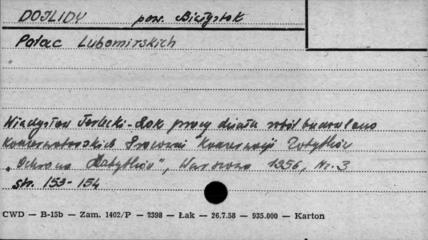 DOJLIDY pow. Białystok
Pałac Lubomirskich
Władysław Terlecki - Rok pracy działu robót budowlano
Konserwatorskich Pracowni Konserwacji Zabytków
„Ochrona Zabytków", Warszawa 1956, Nr. 3
str. 153-154
CWD — B-15b — Zam. 1402/P — 2398 — Łak — 26.7.58 — 935.000 — Karton